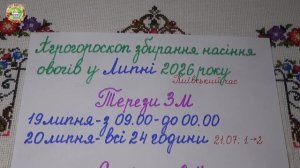 Агрогороскоп збирання насіння
овочів у Липні 2026 року
Київський час
Терези ЗМ
19 липня - з 09.00 - до 00.00
20 липня - всі 24 години 21.07: 1→2